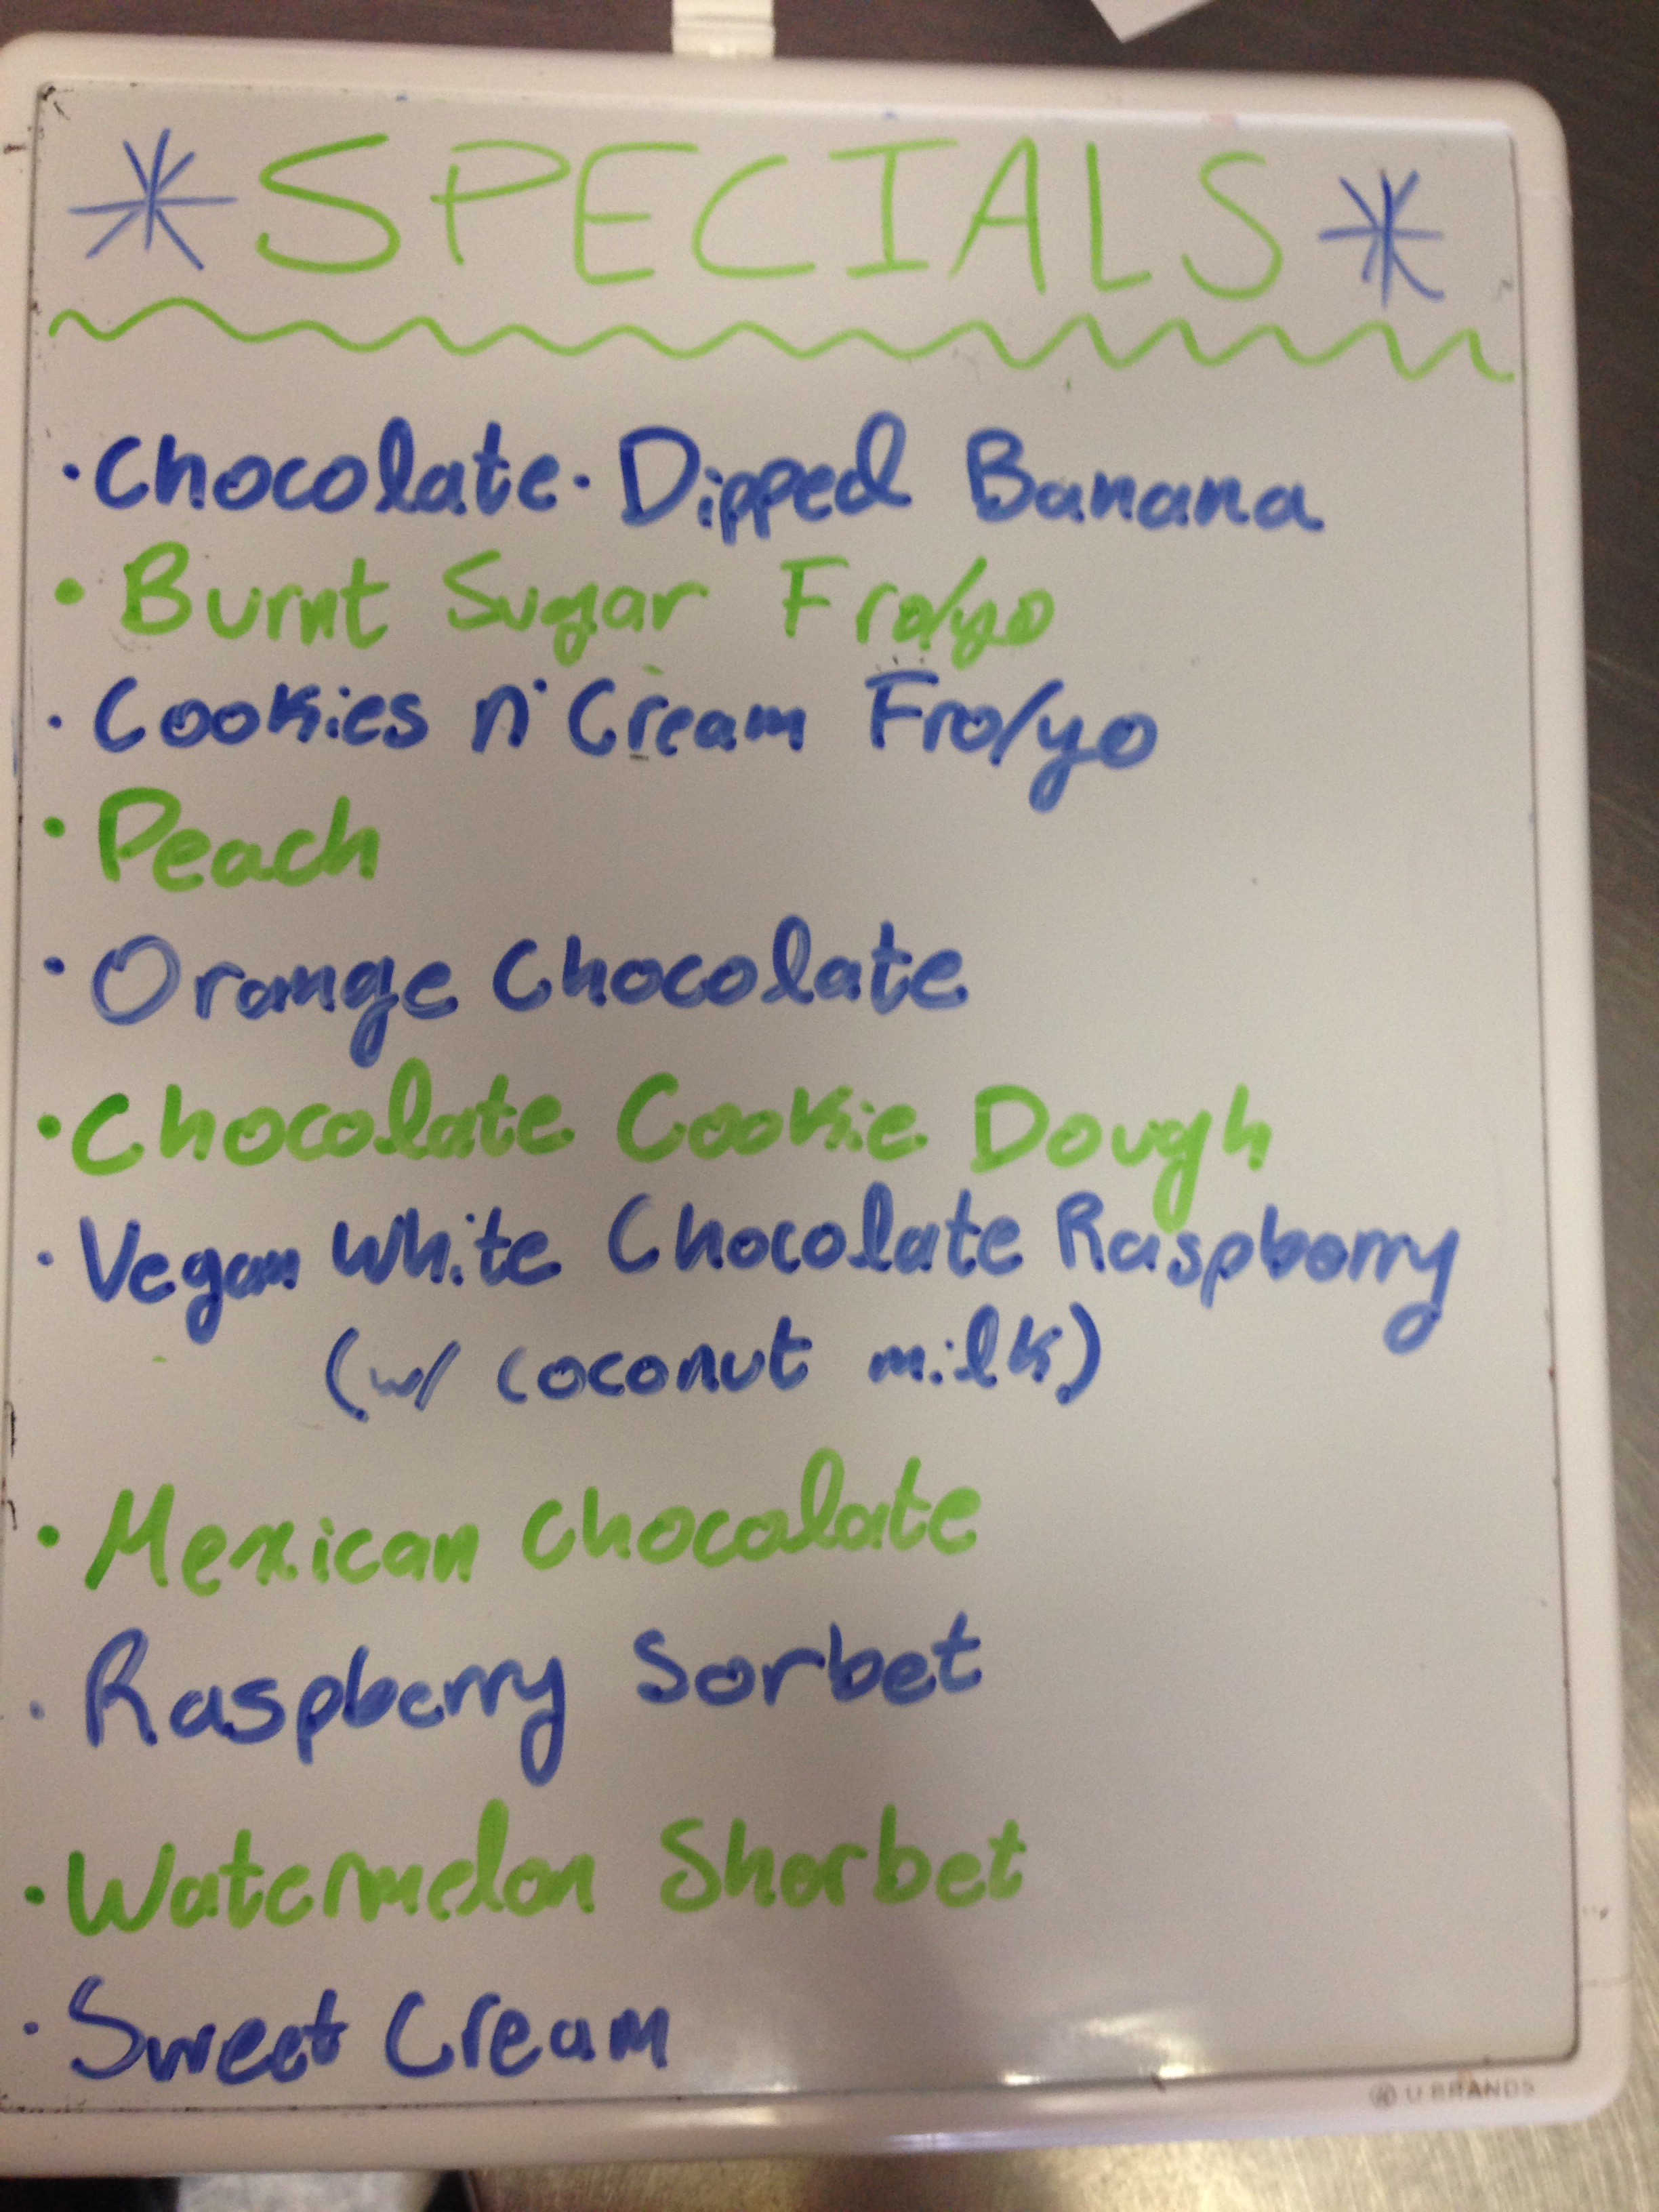 * SPECIALS *
· Chocolate-Dipped Banana
· Burnt Sugar Fro/yo
· Cookies n' Cream Fro/yo
· Peach
· Orange Chocolate
· Chocolate Cookie Dough
· Vegan White Chocolate Raspberry
(w/ coconut milk)
· Mexican Chocolate
· Raspberry Sorbet
· Watermelon Shorbet
· Sweet Cream
U BRANDS